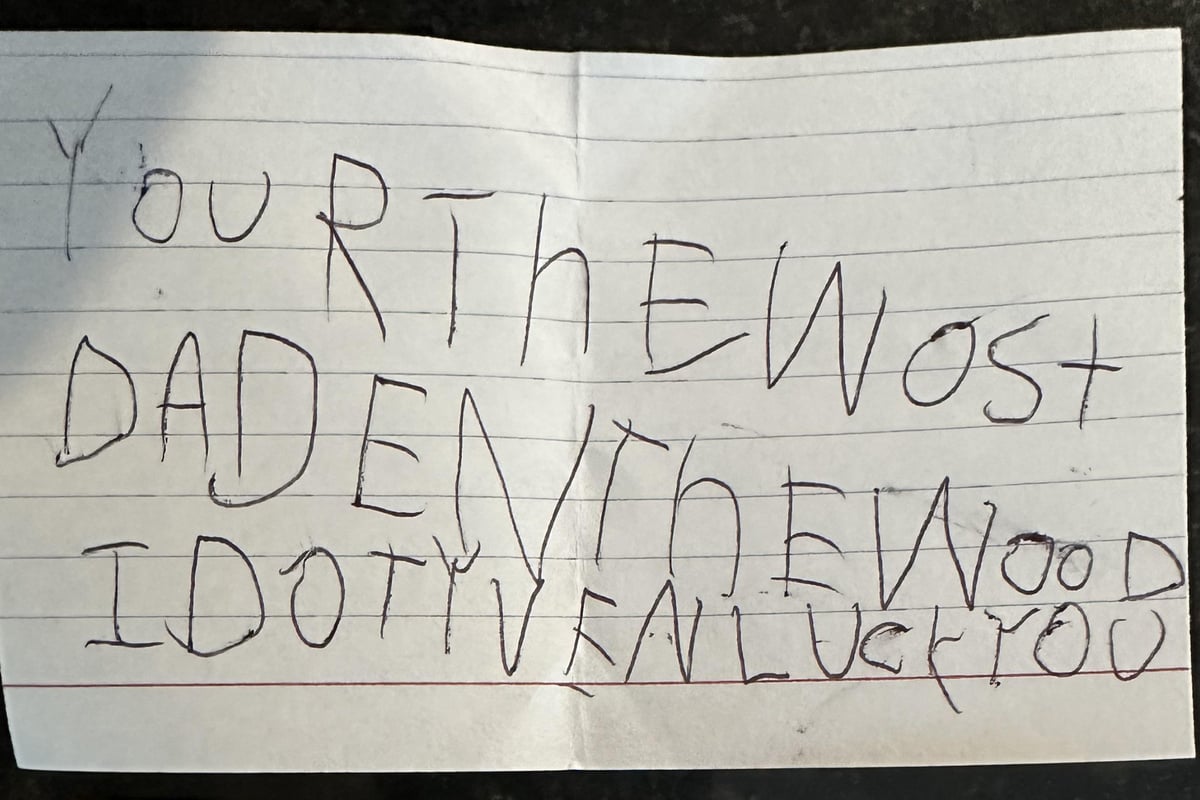 YOUR ThE WOSt
DAD EN ThE WOOD
I DOTY VEN LUCK YOU